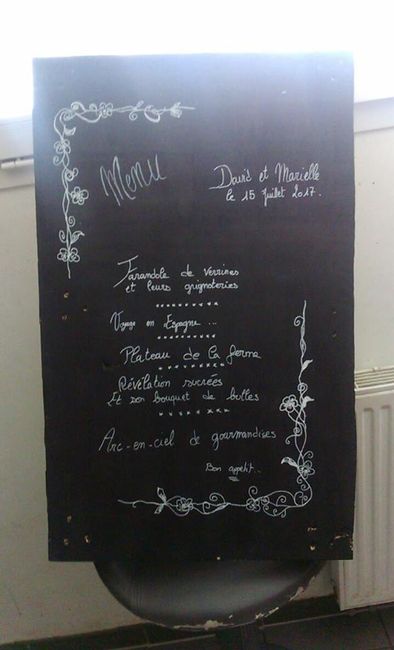 Menu
David et Marielle
le 15 Juillet 2017.
Farandole de verrines
et leurs grignoteries
Voyage en Espagne ...
Plateau de la ferme
Révélation sucrées
Et son bouquet de bulles
Arc-en-ciel de gourmandises
Bon appétit..